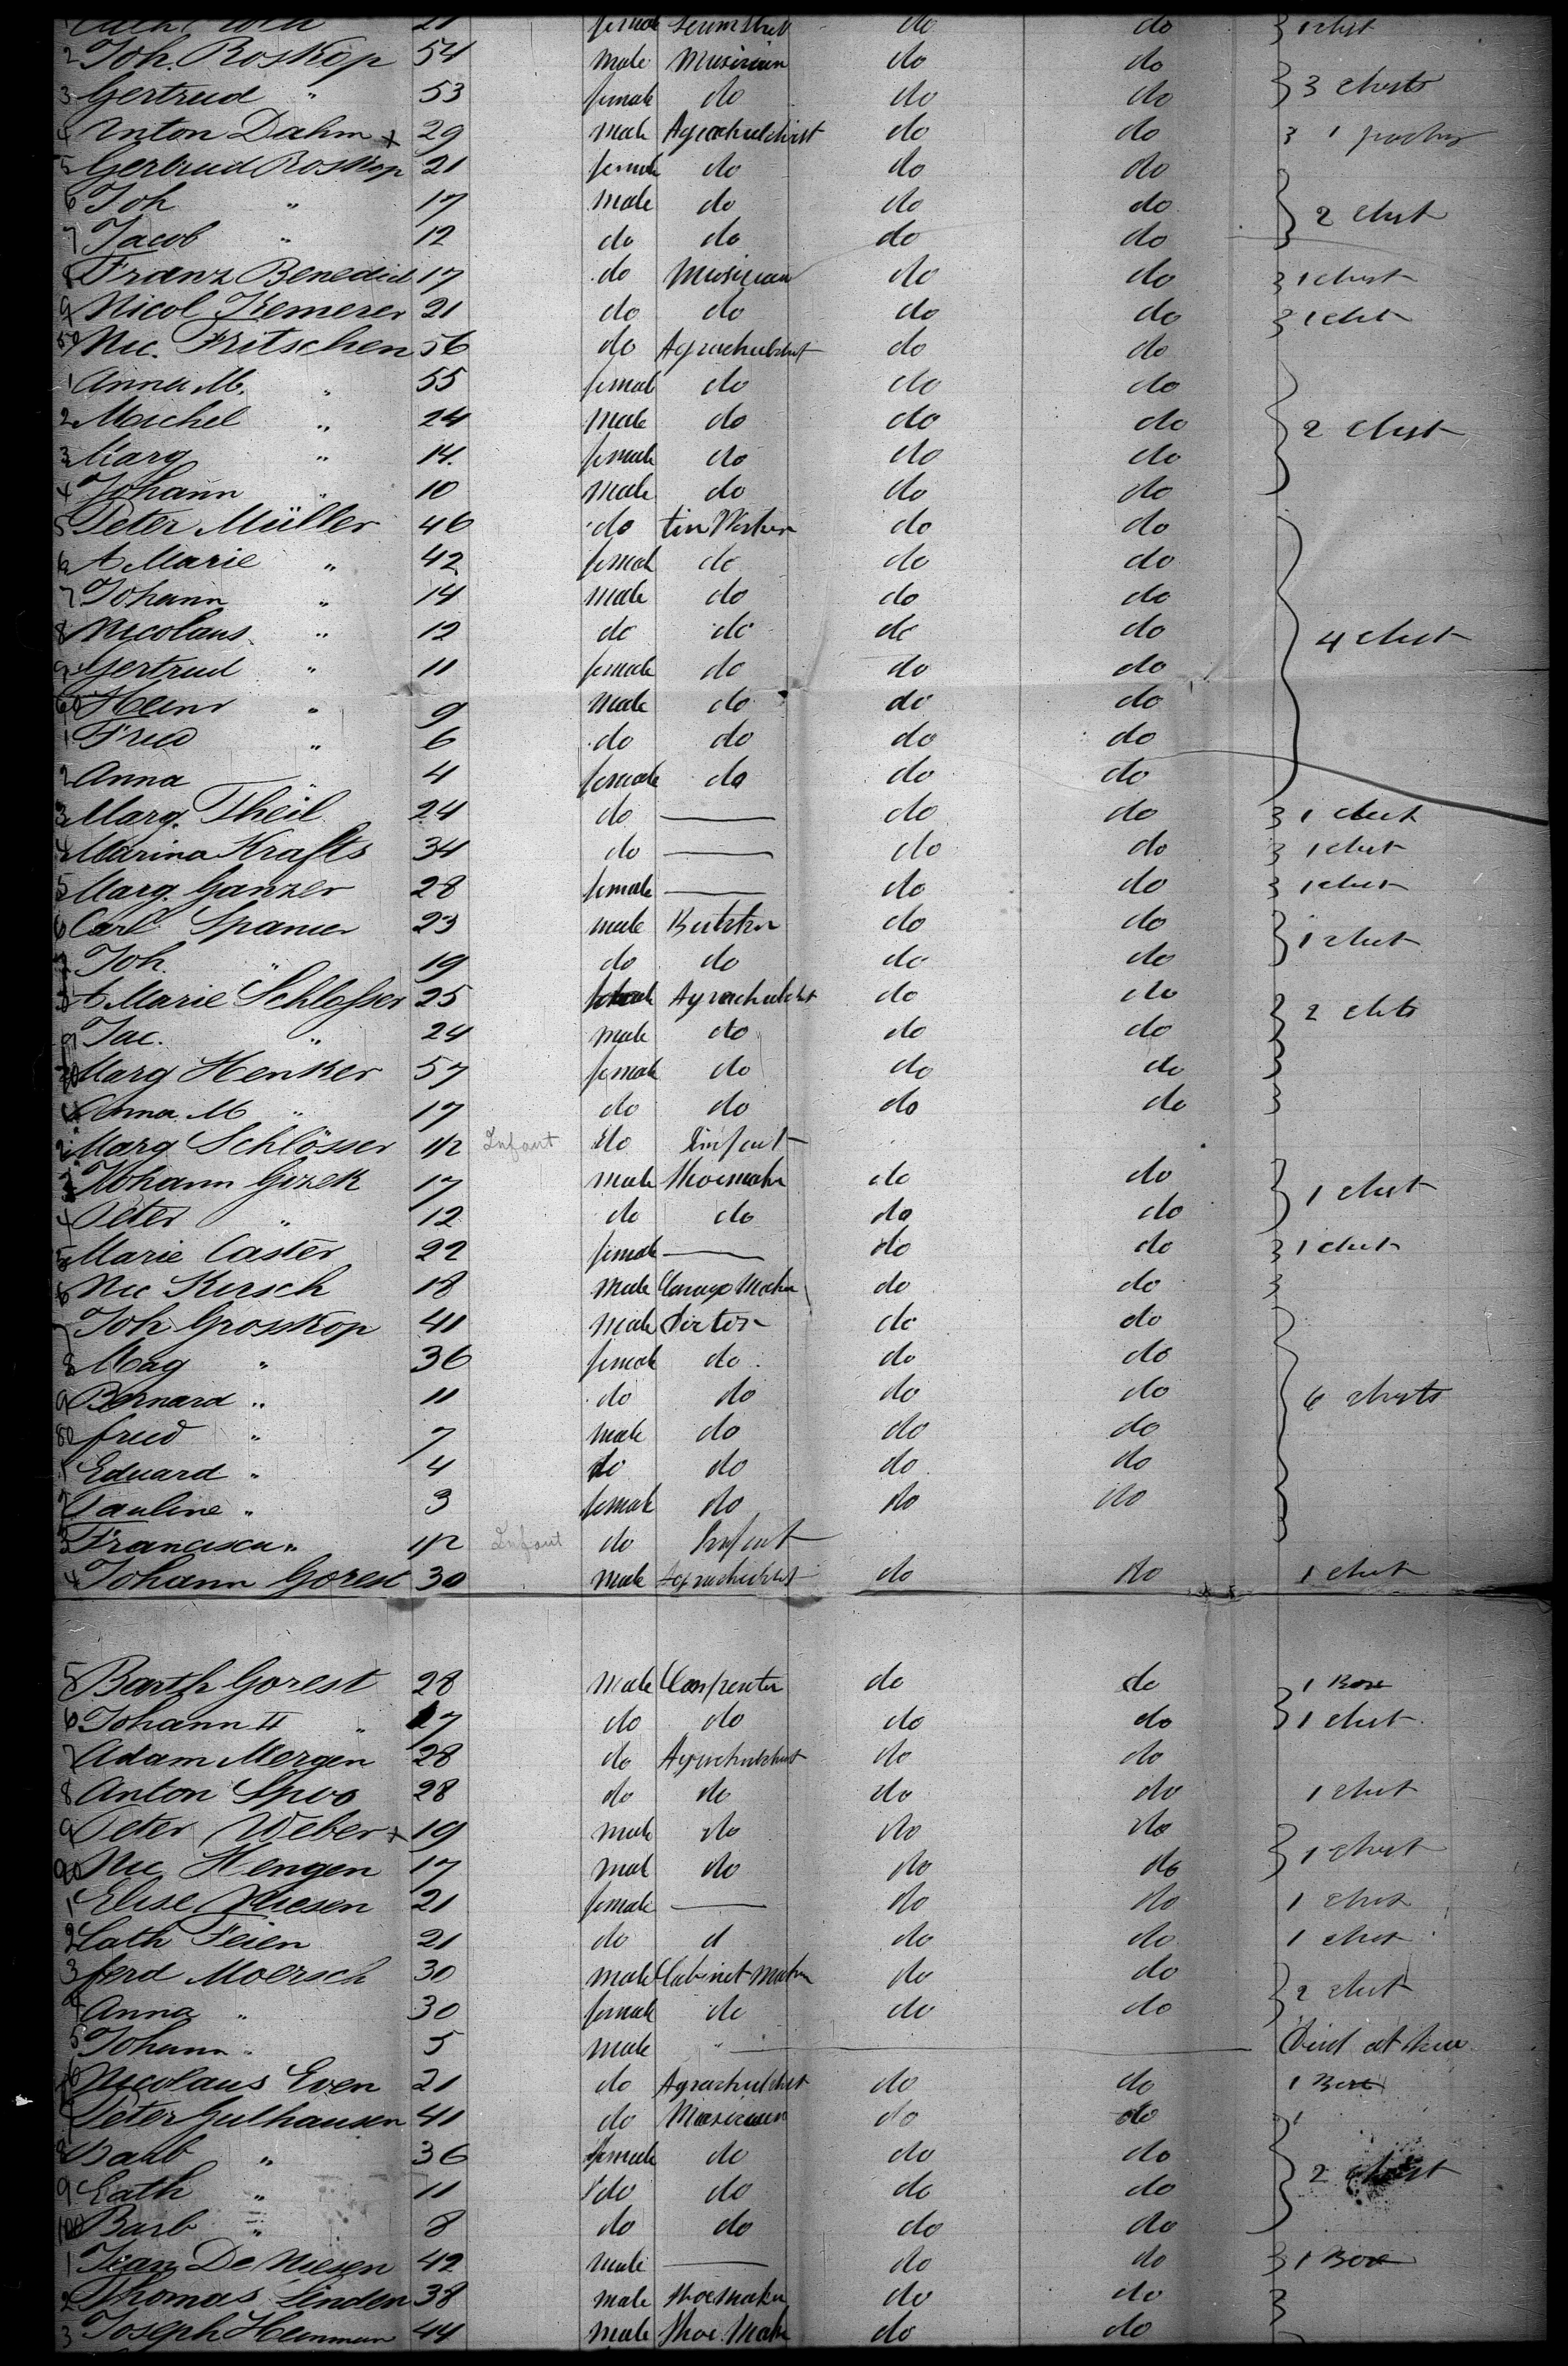 21 female do do 1 chest
2 Joh. Roskop 54 male Musician do do
3 Gertrud " 53 female do do do 3 chests
4 Anton Dahm x 29 male Agraculchist do do 1
5 Gertrud Roskop 21 female do do do
6 Joh " 17 male do do do 2 chest
7 Jacob " 12 do do do do
8 Franz Benedict 17 do Musician do do 1 chest
9 Nicol Kemerer 21 do do do do 1 chest
50 Nic. Fritschen 56 do Agraculchist do do
1 Anna M. " 55 female do do do
2 Michel " 24 male do do do 2 chest
3 Marg " 14 female do do do
4 Johann " 10 male do do do
5 Peter Müller 46 do tin Worker do do
6 A Marie " 42 female do do do
7 Johann " 14 male do do do
8 Nicolaus " 12 do do do do 4 chest
9 Gertrud " 11 female do do do
60 Heinr " 9 male do do do
1 Fried " 6 do do do do
2 Anna " 4 female do do do
3 Marg. Theil 24 do — do do 1 chest
4 Marina Krafts 34 do — do do 1 chest
5 Marg. Ganzer 28 female — do do 1 chest
6 Carl Spanier 23 male do do 1 chest
7 Joh. " 19 do do do do
8 A Marie Schlosser 25 female Agraculchist do do 2 chts
9 Jac. " 24 male do do do
70 Marg Henker 57 female do do do
1 Anna M " 17 do do do do
2 Marg Schlösser 1/2 Infant do Infant
3 Johann Gizek 17 male Shoemaker do do 1 chest
4 Peter " 12 do do do do
5 Marie Caster 22 female — do do 1 chest
6 Nic Kirsch 18 male Maker do do
7 Joh Groskop 41 male do do
8 Mag " 36 female do do do
9 Bernard " 11 do do do do 6 chests
80 fried " 7 male do do do
1 Eduard " 4 do do do do
2 Pauline " 3 female do do do
3 Francisca " 1/2 Infant do Infant
4 Johann Gorest 30 male Agraculchist do do 1 chest
5 Barth Gorest 28 male Carpenter do do 1 Box
6 Johann II " 27 do do do do 1 chest
7 Adam Mergen 28 do Agraculchist do do
8 Anton Spoo 28 do do do do 1 chest
9 Peter Weber x 19 male do do do
90 Nic Hengen 17 mal do do do 1 chest
1 Elise Niesen 21 female — do do 1 chest
2 Cath Feien 21 do d do do 1 chest
3 ferd Moersch 30 male Cabinet Maker do do 2 chest
4 Anna " 30 female do do do
5 Johann " 5 male " — Died at sea
6 Nicolaus Even 21 do Agraculchist do do 1 Box
7 Peter Gulhausen 41 do Musician do do
8 Barb " 36 female do do do
9 Cath " 11 do do do do 2 chest
100 Barb " 8 do do do do
1 Jean De Niesen 42 male — do do 1 Box
2 Thomas Linden 38 male Shoemaker do do
3 Joseph Heinman 44 male Shoe Maker do do